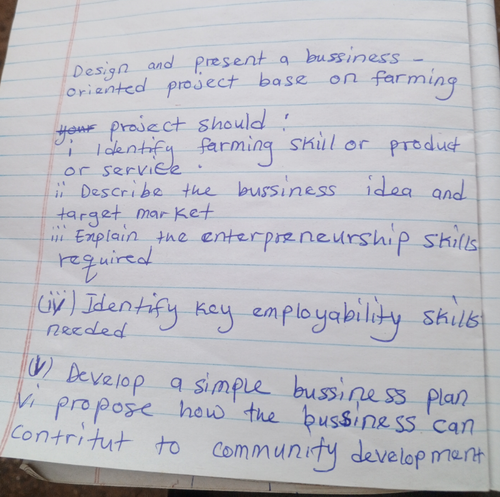 Design and present a bussiness -
oriented project base on farming
your project should :
i Identify farming skill or product
or service .
ii Describe the bussiness idea and
target market
iii Explain the enterpreneurship skills
required
(iv) Identify key employability skills
needed
(v) Develop a simple bussiness plan
vi propose how the bussiness can
contritut to community development